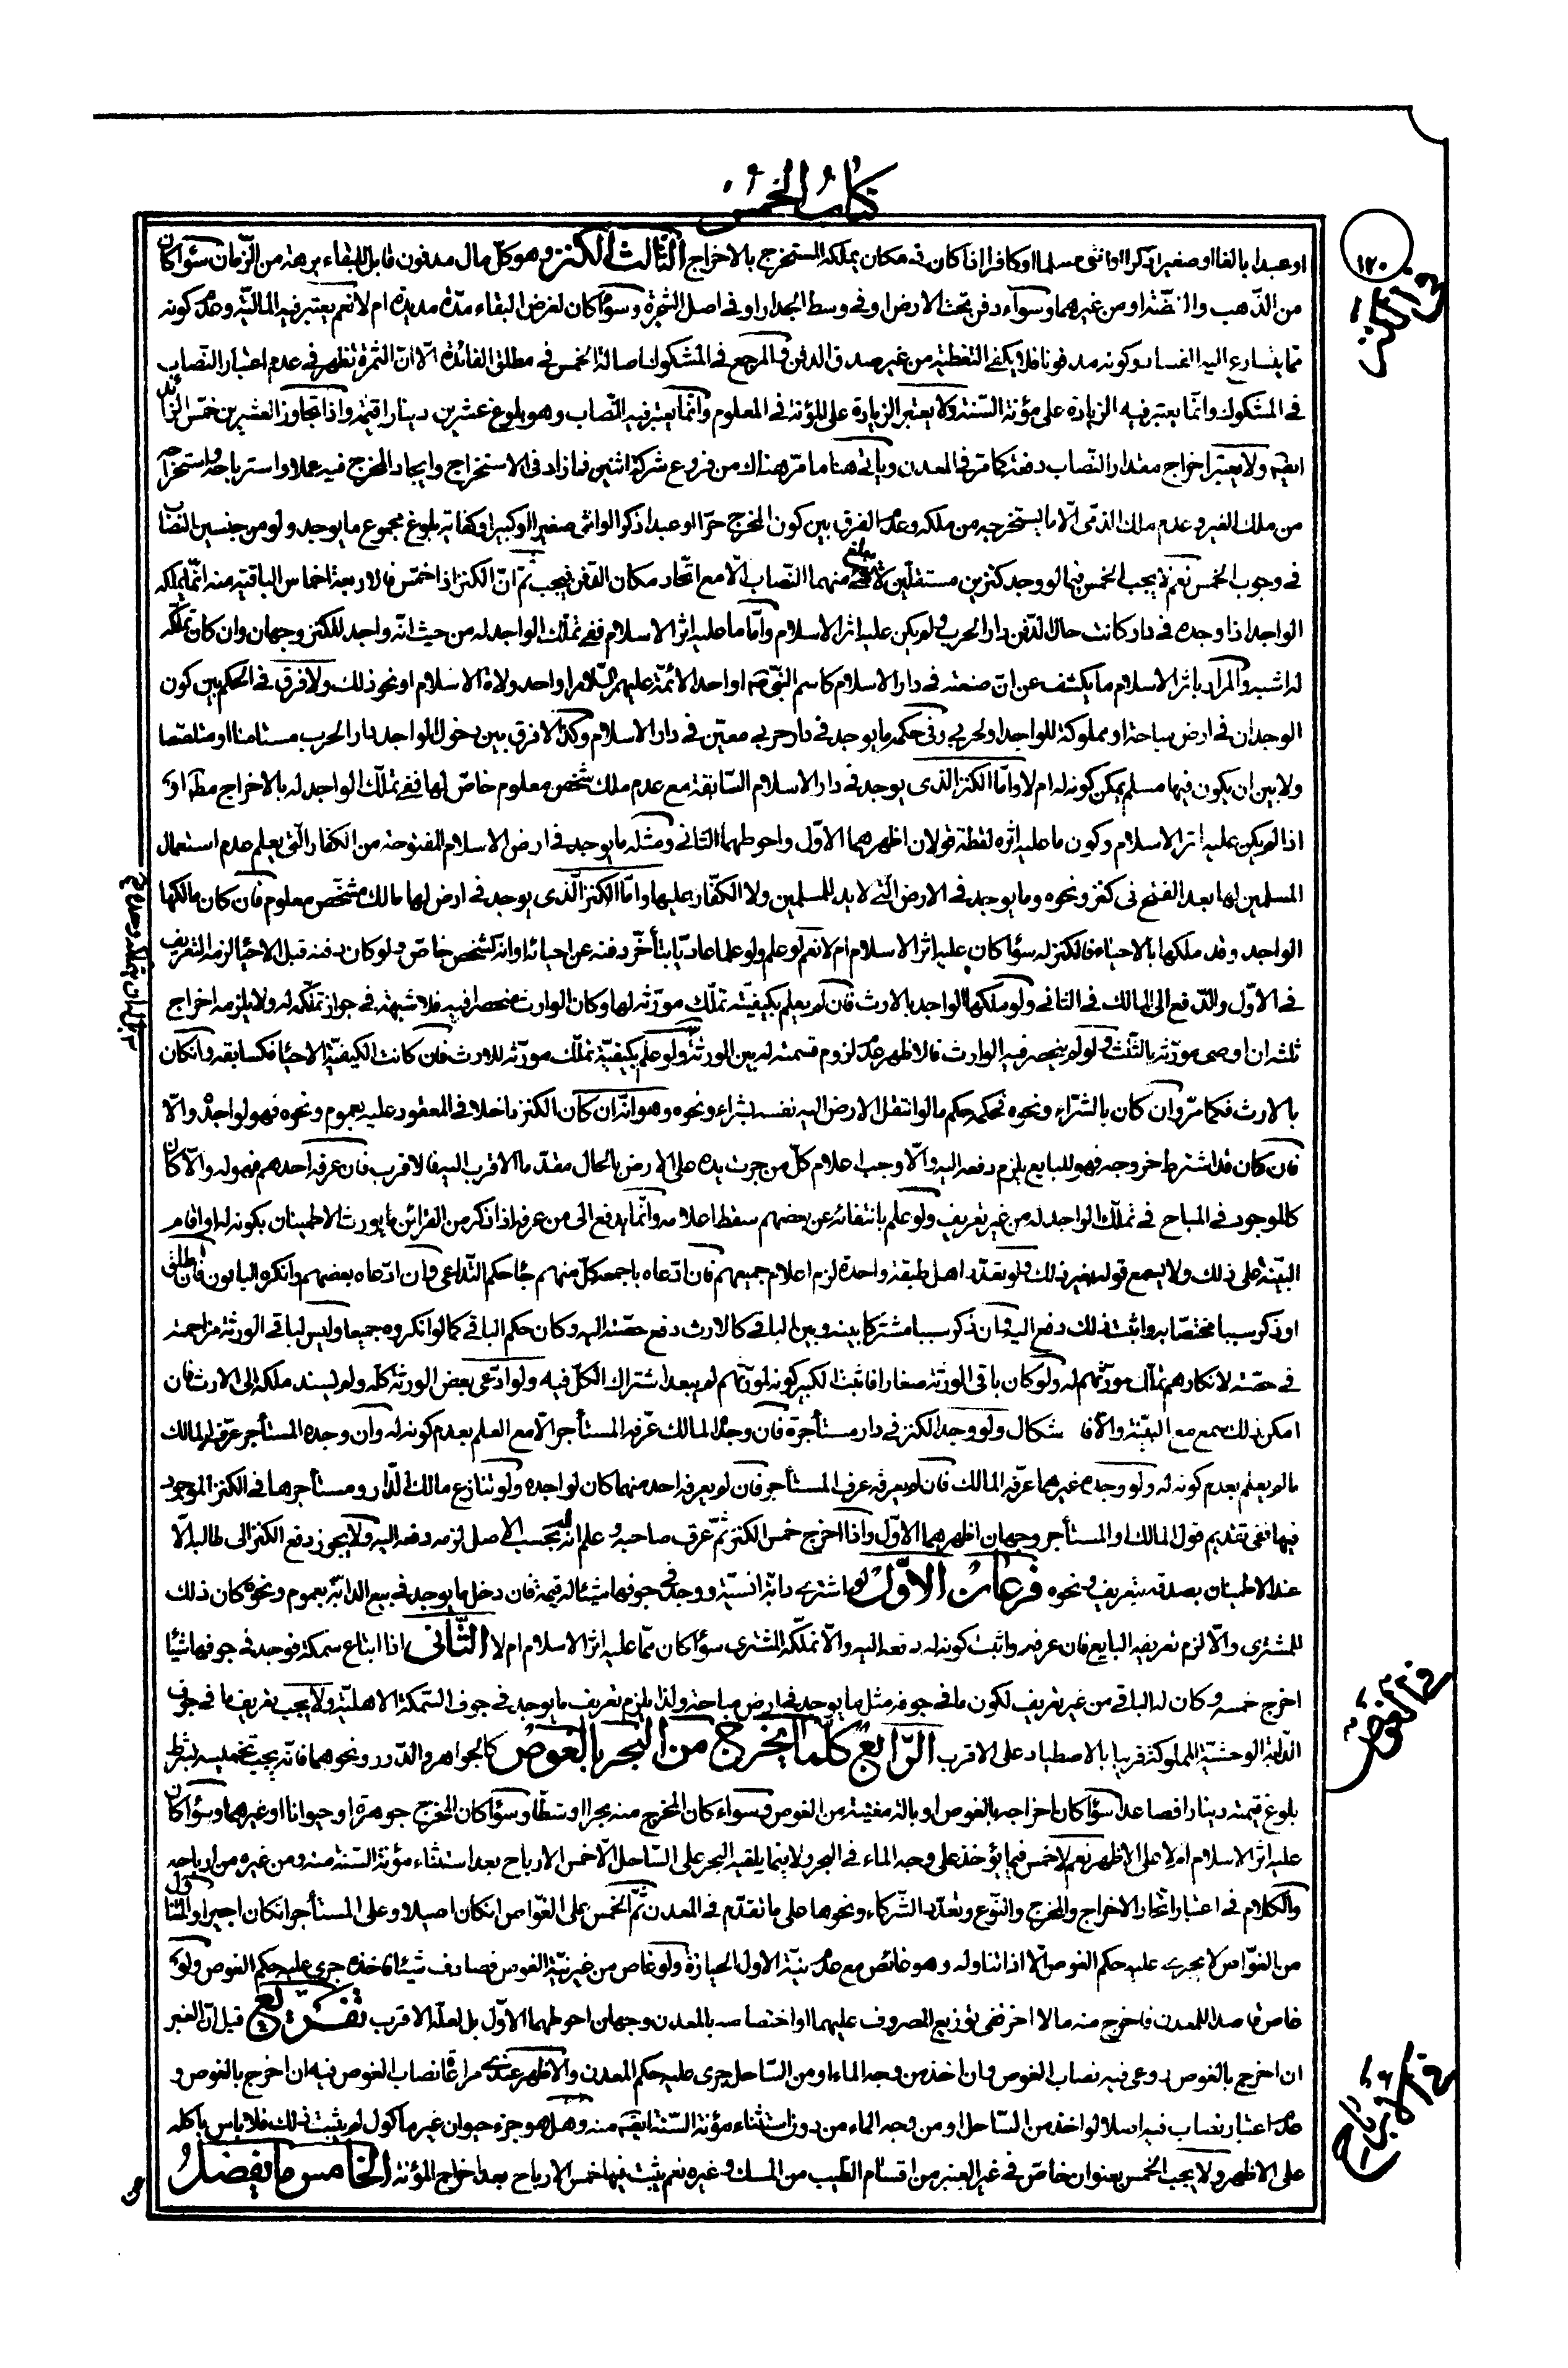 كتاب الخمس
١٢٠
او عبدا بالغا او صغيرا ذكرا او انثى مسلما او كافرا اذا كان فى مكان يملكه المستخرج بالاخراج الثالث الكنز وهو كل مال مدفون قابل للبقاء برهة من الزمان سواء كان
من الذهب والفضة او من غيرهما وسواء دفن تحت الارض او فى وسط الجدار او فى اصل الشجرة وسواء كان لغرض البقاء مدة مديدة ام لا نعم يعتبر فيه المالية وعدم كونه
مما يتسارع اليه الفساد وكونه مدفونا فلا يكفى التغطية من غير صدق الدفن والمرجع فى المشكوك اصالة الخمس فى مطلق الفائدة الا ان الثمرة تظهر فى عدم اعتبار النصاب
فى المشكوك وانما يعتبر فيه الزيادة على مؤنة السنة ولا يعتبر الزيادة على المؤنة فى المعلوم وانما يعتبر فيه النصاب وهو بلوغ عشرين دينارا قيمة واذا تجاوز العشرين خمس الزائد
ايضا ولا يعتبر اخراج مقدار النصاب دفعة كما مر فى المعدن ويأتى هنا ما مر هناك من فروع شركة اثنين فما زاد فى الاستخراج وايجاد المخرج فيه عملا واسترباحه واستخراجه
من ملك الغير وعدم ملك الذمى الا ما يستخرجه من ملكه وعدم الفرق بين كون المخرج حرا او عبدا ذكرا او انثى صغيرا او كبيرا وكفاية بلوغ مجموع ما يوجد ولو من جنسين النصاب
فى وجوب الخمس نعم لا يجب الخمس فيما لو وجد كنزين مستقلين لا يبلغ كل منهما النصاب الا مع اتحاد مكان الدفن فيجب ثم ان الكنز اذا خمس فالاربعة اخماس الباقية منه انما يملكه
الواجد اذا وجده فى دار كانت حال الدفن دار الحرب ولم يكن عليه اثر الاسلام واما ما عليه اثر الاسلام ففى تملك الواجد له من حيث انه واجد للكنز وجهان وان كان تملكه
له اشبه والمراد باثر الاسلام ما يكشف عن ان صنعته فى دار الاسلام كاسم النبى ص او احد الائمة عليهم السلام او احد ولاة الاسلام او نحو ذلك ولا فرق فى الحكم بين كون
الوجدان فى ارض مباحة او مملوكة للواجد او لحربى وفى حكمه ما يوجد فى دار حربى معين فى دار الاسلام وكذا لا فرق بين دخول الواجد دار الحرب مستامنا او متلصصا
ولا بين ان يكون فيها مسلم يمكن كونه له ام لا واما الكنز الذى يوجد فى دار الاسلام السابقة مع عدم ملك شخص معلوم خاص لها ففى تملك الواجد له بالاخراج مطلقا او
اذا لم يكن عليه اثر الاسلام وكون ما عليه اثره لقطة قولان اظهرهما الاول واحوطهما الثانى ومثله ما يوجد فى ارض الاسلام المفتوحة من الكفار التى يعلم عدم استعمال
المسلمين لها بعد الفتح فى كنز ونحوه وما يوجد فى الارض التى لا يد للمسلمين ولا الكفار عليها واما الكنز الذى يوجد فى ارض لها مالك مشخص معلوم فان كان مالكها
الواجد وقد ملكها بالاحياء فالكنز له سواء كان عليه اثر الاسلام ام لا نعم لو علم ولو علما عاديا بتأخر دفنه عن احيائه او انه لشخص خاص ولو كان دفنه قبل الاحياء لزمه التعريف
فى الاول والدفع الى المالك فى الثانى ولو ملكها الواجد بالارث فان لم يعلم بكيفية تملك مورثه لها وكان الوارث منحصرا فيه فلا شبهة فى جواز تملكه له ولا يلزمه اخراج
ثلثه ان اوصى مورثه بالثلث ولو لم ينحصر فيه الوارث فالاظهر عدم لزوم قسمته له بين الورثة ولو علم بكيفية تملك مورثه للارث فان كانت الكيفية الاحياء فكسابقه وان كان
بالارث فكما مر وان كان بالشراء ونحوه فحكمه حكم ما لو انتقل الارض اليه نفسه بشراء ونحوه وهو انه ان كان الكنز داخلا فى المعقود عليه بعموم ونحوه فهو لواجده والا
فان كان قد اشترط خروجه فهو للبايع يلزم دفعه اليه والا وجب اعلام كل من جرت يده على الارض بالحال مقدما الاقرب اليه فالاقرب فان عرفه احدهم فهو له والا كان
كالموجود فى المباح فى تملك الواجد له من غير تعريف ولو علم بانتفائه عن بعضهم سقط اعلامه وانما يدفع الى من عرفه اذا ذكر من القرائن ما يورث الاطمينان بكونه له او اقام
البينة على ذلك ولا يسمع قوله بغير ذلك ولو تعدد اهل طبقة واحدة لزم اعلام جميعهم فان ادعاه باجمعه كل منهم جاء حكم التداعى وان ادعاه بعضهم وانكره الباقون فان اطلق
او ذكر سببا مختصا به واثبت ذلك دفع اليه وان ذكر سببا مشتركا بينه وبين الباقى كالارث دفع حصته اليه وكان حكم الباقى كما لو انكروه جميعا وليس لباقى الورثة مزاحمته
فى حصته لانكارهم تملك مورثهم له ولو كان باقى الورثة صغارا فاثبت الكبير كونه لمورثهم لم يبعد اشتراك الكل فيه ولو ادعى بعض الورثة كله ولم يسند ملكه الى الارث فان
امكن ذلك سمع مع البينة والا فاشكال ولو وجد الكنز فى دار مستأجرة فان وجده المالك عرفه المستأجر الا مع العلم بعدم كونه له وان وجده المستأجر عرفه المالك
ما لم يعلم بعدم كونه له ولو وجده غيرهما عرفه المالك فان لم يعرفه عرف المستأجر فان لم يعرفه احد منهما كان لواجده ولو تنازع مالك الدار ومستأجرها فى الكنز الموجود
فيها ففى تقديم قول المالك او المستأجر وجهان اظهرهما الاول واذا اخرج خمس الكنز ثم عرف صاحبه وعلم انه له بحسب الاصل لزمه دفعه اليه ولا يجوز دفع الكنز الى طالبه الا
عند الاطمينان بصدقه بتعريف ونحوه فرعان الاول لو اشترى دابة انسية ووجد فى جوفها شيئا له قيمة فان دخل ما يوجد فى بيع الدابة بعموم ونحوه كان ذلك
للمشترى والا لزم تعريفه البايع فان عرفه واثبت كونه له دفعه اليه والا تملكه المشترى سواء كان مما عليه اثر الاسلام ام لا الثانى اذا ابتاع سمكة فوجد فى جوفها شيئا
اخرج خمسه وكان له الباقى من غير تعريف لكون ما فى جوفه مثل ما يوجد فى ارض مباحة ولذا يلزم تعريف ما يوجد فى جوف السمكة الاهلية ولا يجب تعريف ما فى جوف
الدابة الوحشية المملوكة قريبا بالاصطياد على الاقرب الرابع كلما يخرج من البحر بالغوص كالجواهر والدرر ونحوهما فانه يجب تخميسه بشرط
بلوغ قيمته دينارا فصاعدا سواء كان اخراجه بالغوص او بالة مغنية من الغوص وسواء كان المخرج منه بحرا او شطا وسواء كان المخرج جوهرة او حيوانا او غيرهما وسواء كان
عليه اثر الاسلام ام لا على الاظهر نعم لا خمس فيما يؤخذ على وجه الماء فى البحر ولا فيما يلقيه البحر على الساحل الا خمس الارباح بعد استثناء مؤنة السنة منه ومن غيره من ارباحه
والكلام فى اعتبار اتحاد الاخراج والمخرج والنوع وتعدد الشركاء ونحوها على ما تقدم فى المعدن ثم الخمس على الغواص ان كان اصيلا وعلى المستأجر ان كان اجيرا والمتناول
من الغواص لا يجرى عليه حكم الغوص الا اذا تناوله وهو غائص مع عدم نية الاول الحيازة ولو غاص من غير نية الغوص فصادف شيئا فاخذه جرى عليه حكم الغوص ولو
غاص قاصدا للمعدن فاخرج منه مالا اخر ففى توزيع المصروف عليهما او اختصاصه بالمعدن وجهان احوطهما الاول بل لعله الاقرب تفريع قيل ان العنبر
ان اخرج بالغوص روعى فيه نصاب الغوص وان اخذ من وجه الماء او من الساحل جرى عليه حكم المعدن والاظهر عندى مراعاة نصاب الغوص فيه ان اخرج بالغوص و
عدم اعتبار نصاب فيه اصلا لو اخذ من الساحل او من وجه الماء من دون استثناء مؤنة السنة ايضا منه وهل هو جزء حيوان غير مأكول لم يثبت ذلك فلا باس باكله
على الاظهر ولا يجب الخمس بعنوان خاص فى غير العنبر من اقسام الطيب من المسك وغيره نعم يثبت فيها خمس الارباح بعد اخراج المؤنة الخامس ما يفضل
عن
فى الكنز
فى الغوص
فى الارباح